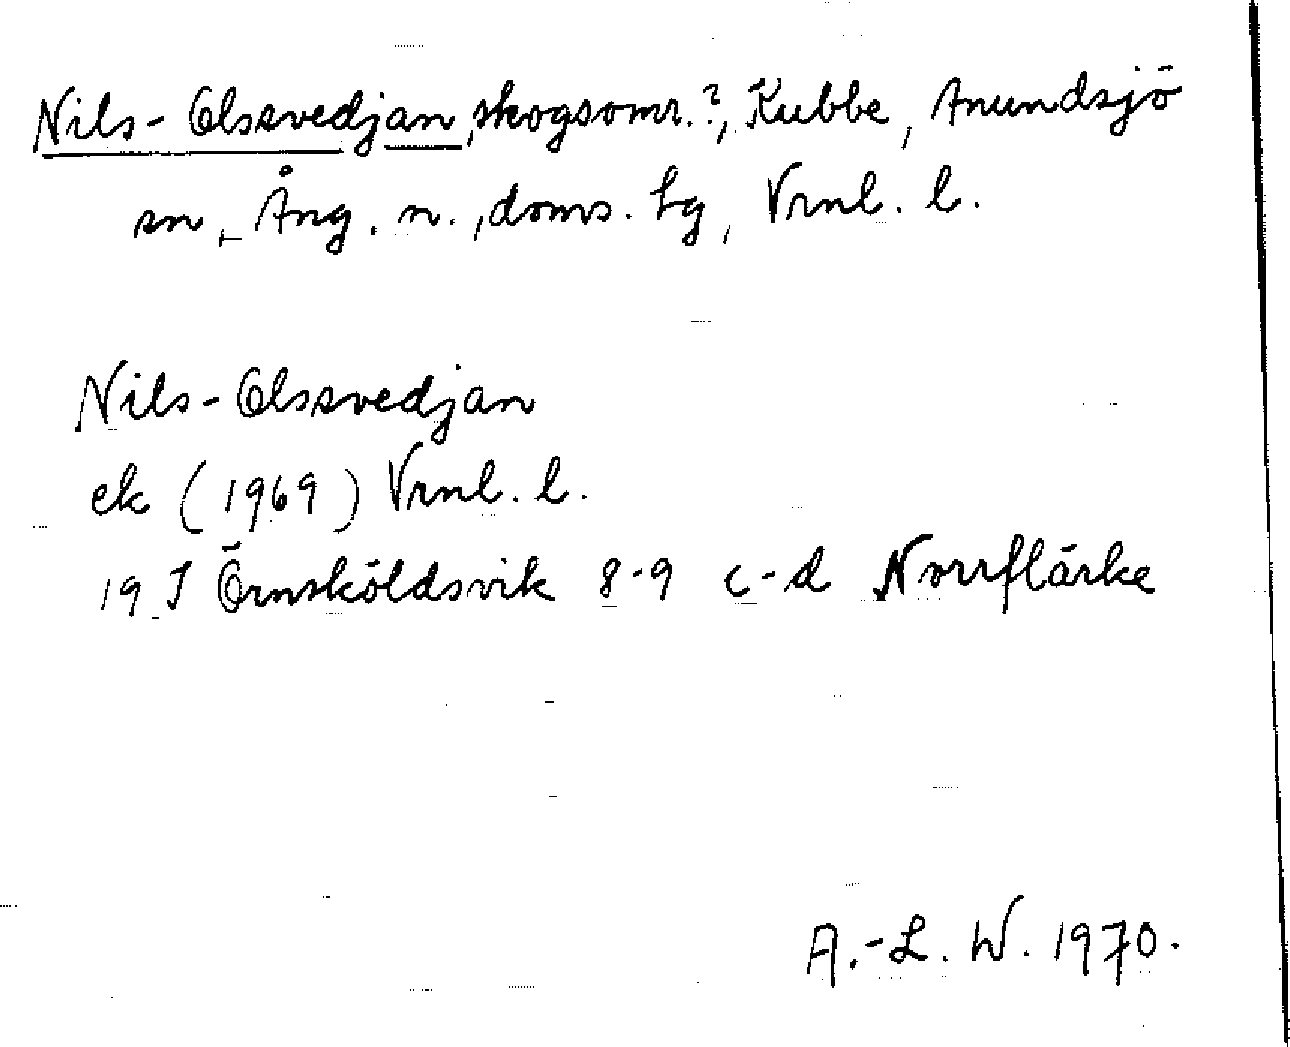 Nils-Olssvedjan, skogsomr.?, Kubbe, Anundsjö
sn, Ång. n., doms. hg, Vrnl. l.
Nils-Olssvedjan
ek (1969) Vrnl. l.
19 J Örnsköldsvik 8-9 c-d Norrflärke
A.-L. W. 1970.